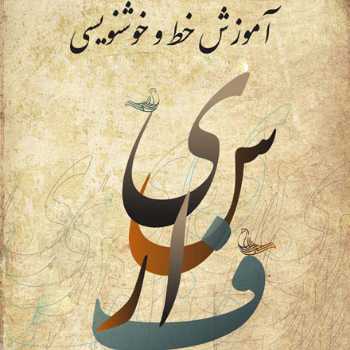 آموزش خط و خوشنویسی
فارسی